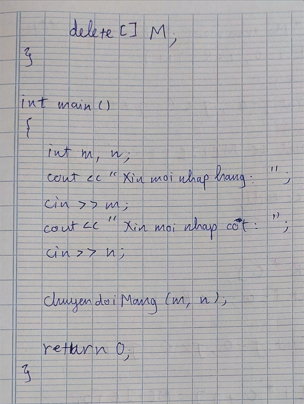 delete [] M;
}
int main ()
{
int m, n;
cout << "Xin moi nhap hang: ";
cin >> m;
cout << "Xin moi nhap cốt: ";
cin >> n;
chuyendoiMang (m, n);
return 0;
}